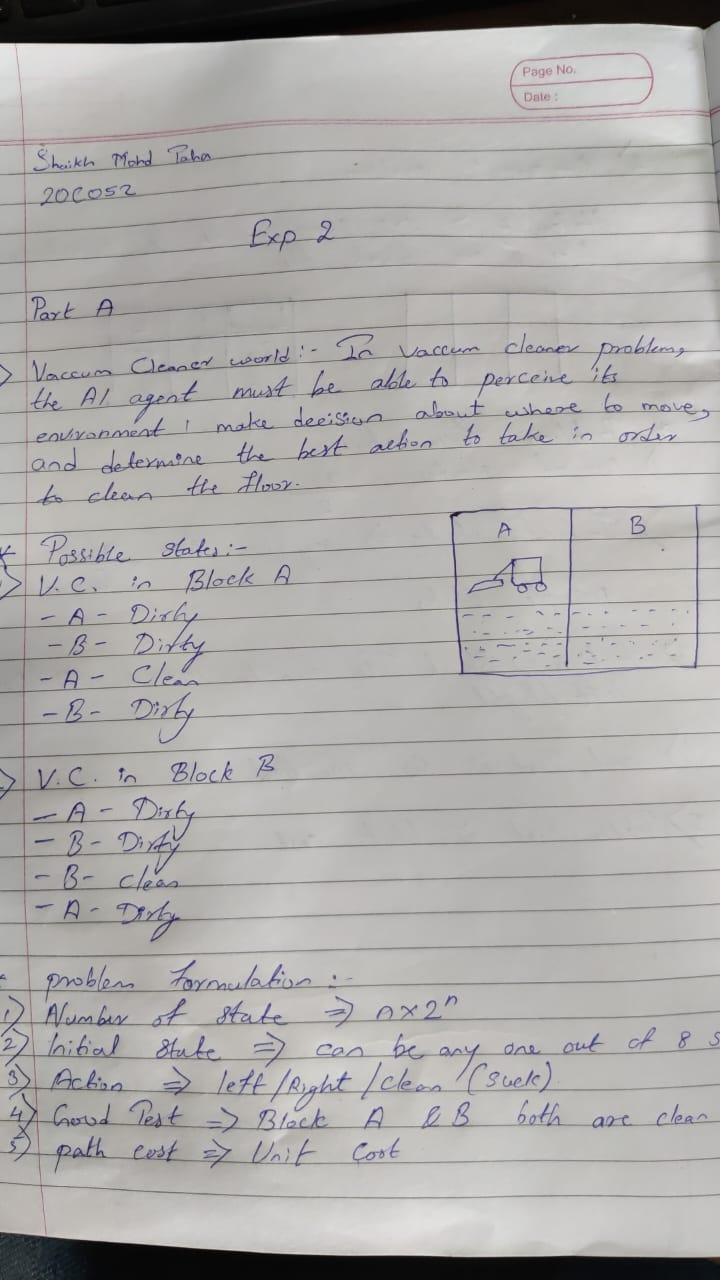 Page No.
Date :
Shaikh Mohd Taha
20CO52
Exp 2
Part A
Vaccum Cleaner world :- In vaccum cleaner problem,
the AI agent must be able to perceive its
environment, make decision about where to move,
and determine the best action to take in order
to clean the floor.
* Possible states :-
V.C. in Block A
- A - Dirty
- B - Dirty
- A - Clean
- B - Dirty
A B
V.C. in Block B
- A - Dirty
- B - Dirty
- B - clean
- A - Dirty
problem formulation :-
1) Number of state => n x 2^n
2) Initial state => can be any one out of 8 s
3) Action => left / Right / clean (suck)
4) Goal Test => Block A & B both are clean
5) path cost => Unit Cost